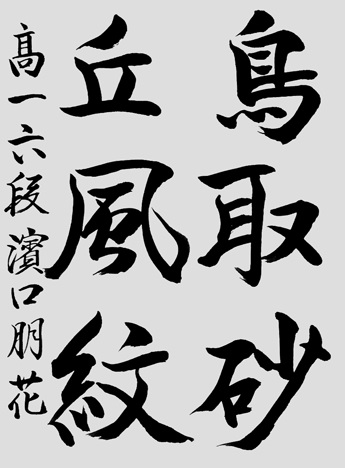 鳥取砂
丘風紋
高一六段濱口朋花